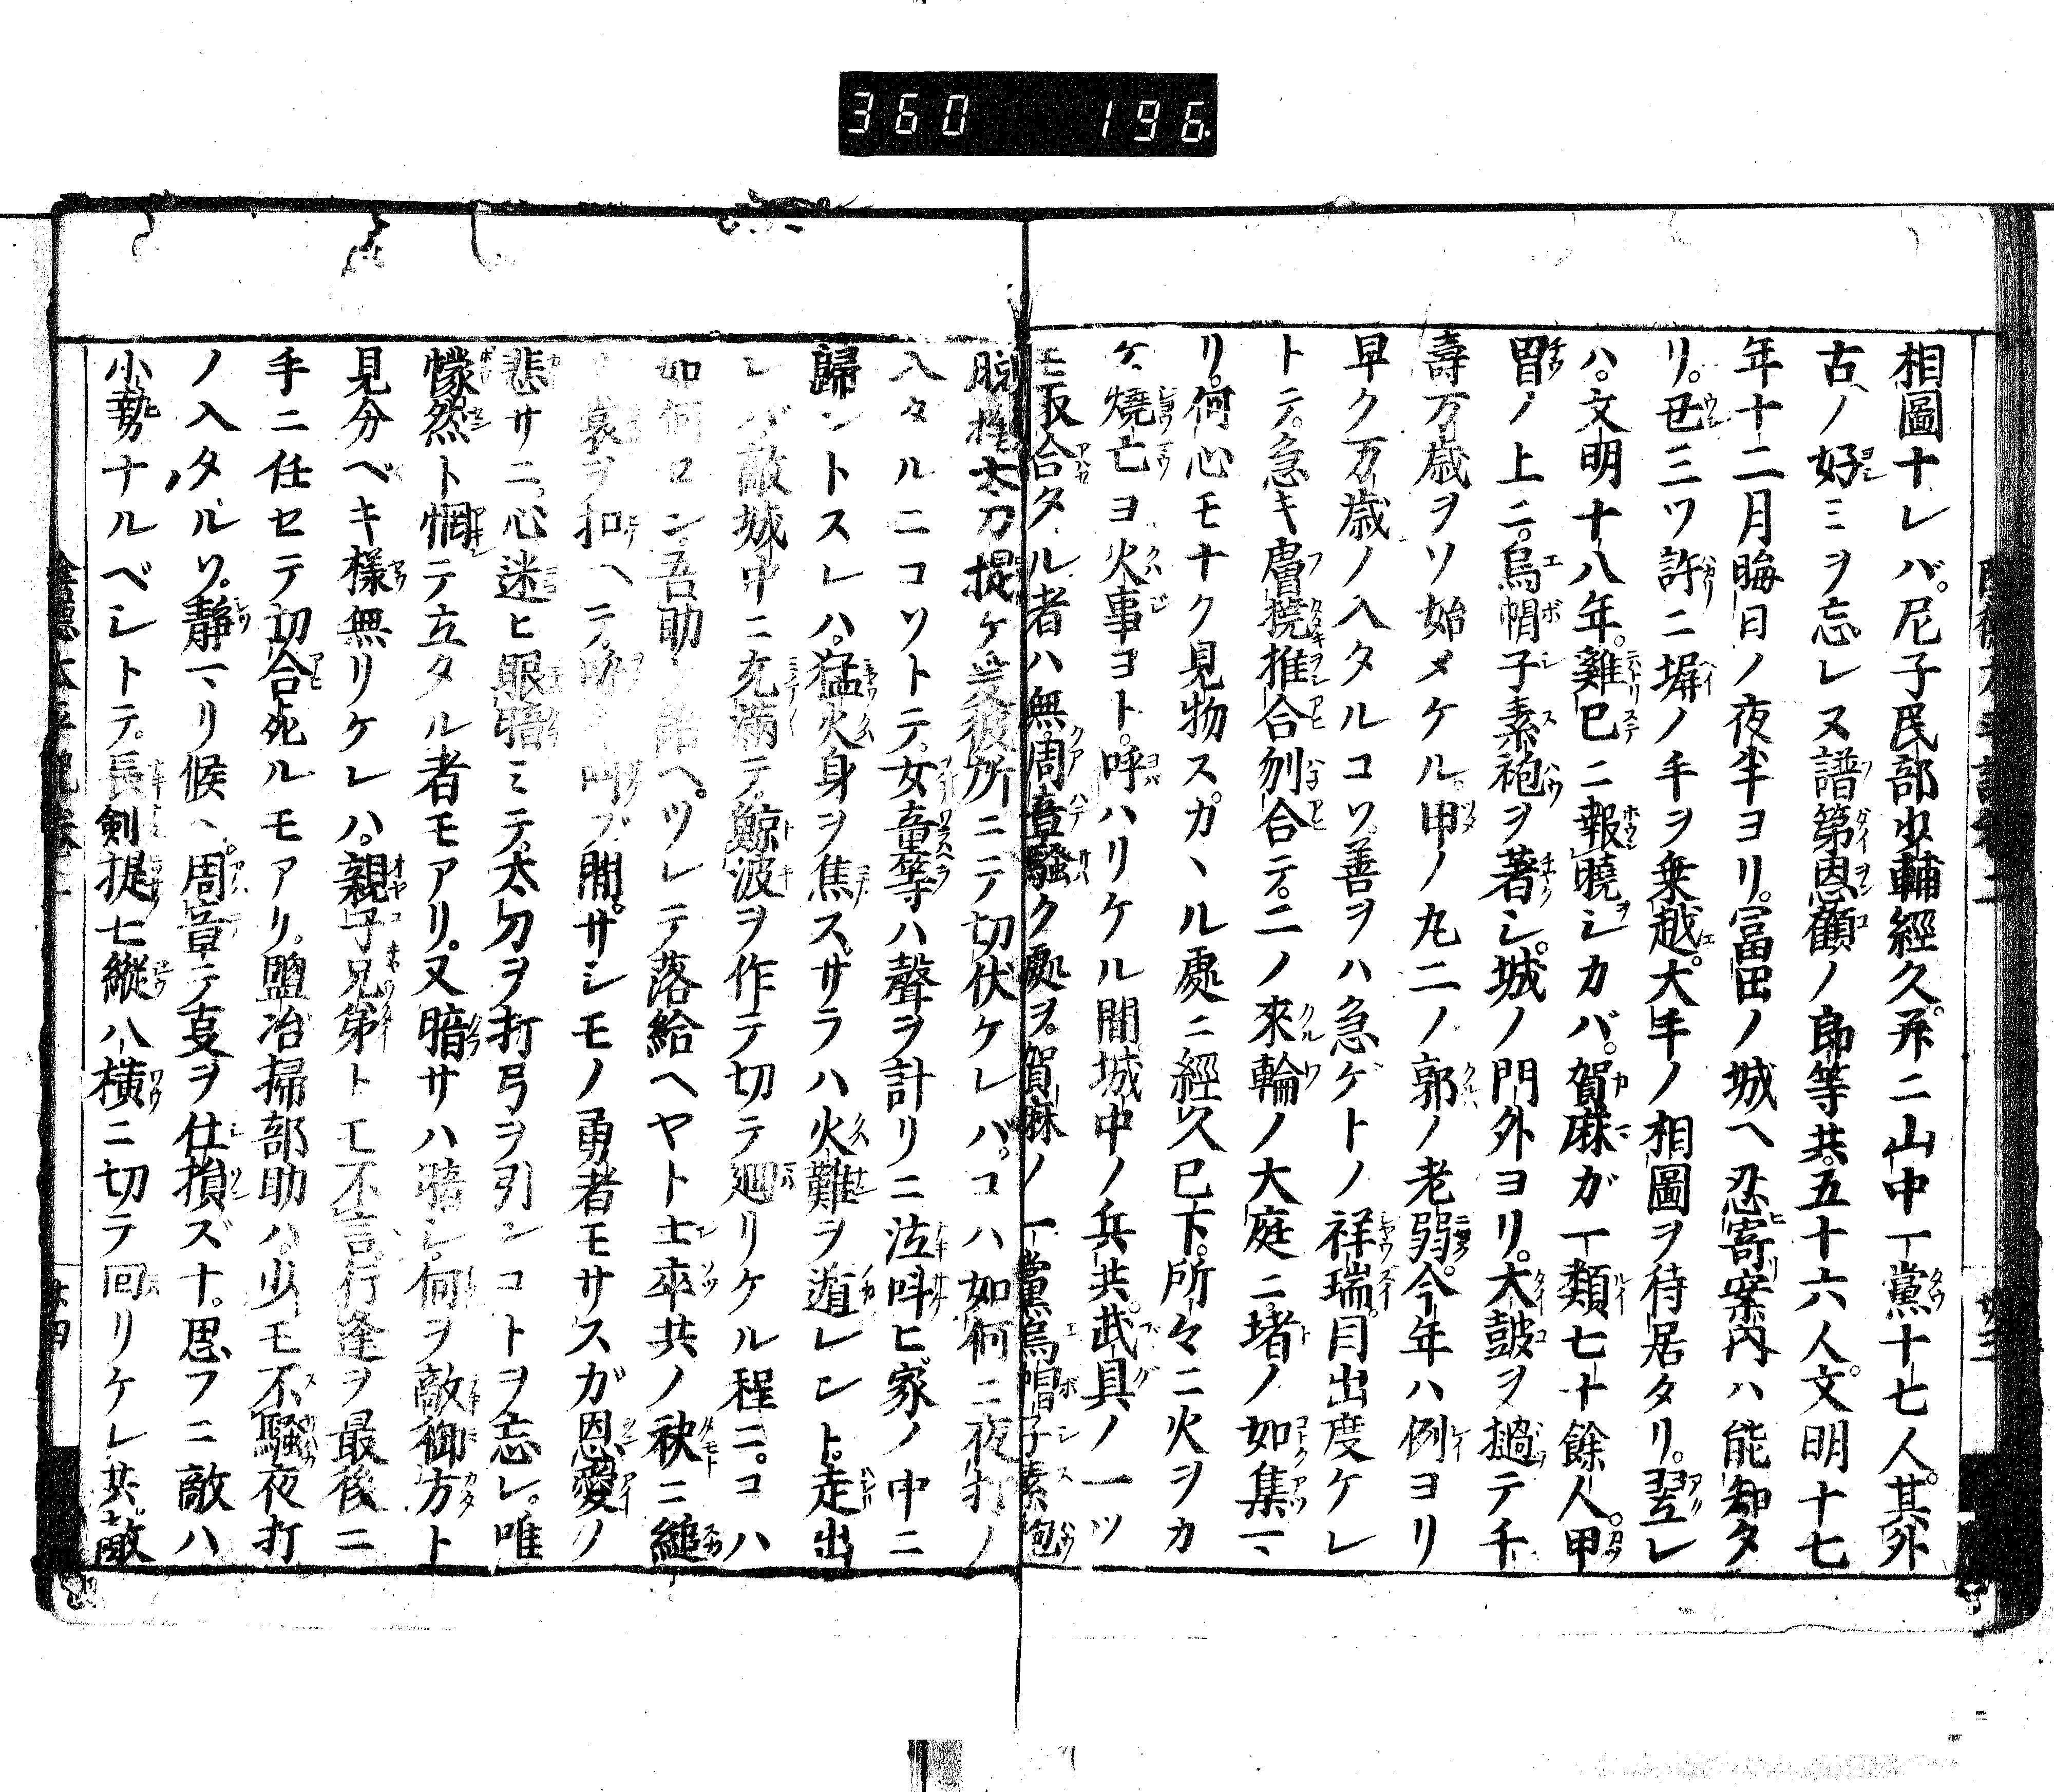 360 196.
相圖十レバ。尼子民部少輔經久。并ニ山中一黨十七人。其外
古ノ好ミヲ忘レヌ譜第恩顧ノ郎等共。五十六人。文明十七
年十二月晦日ノ夜半ヨリ。冨田ノ城ヘ忍寄。案内ハ能知タ
リ。丑三ツ許ニ塀ノ手ヲ乗越。大手ノ相圖ヲ待居タリ。翌レ
ハ。文明十八年。雞已ニ報曉シカバ。賀麻ガ一類七十餘人。甲
冑ノ上ニ。烏帽子素袍ヲ著シ。城ノ門外ヨリ。大皷ヲ撾テ千
壽万歳ヲソ始メケル。甲ノ丸二ノ郭ノ老弱。今年ハ例ヨリ
早ク万歳ノ入タルコソ。善ヲハ急ゲトノ祥瑞。目出度ケレ
トテ。急キ膚撓推合刎合テ。二ノ來輪ノ大庭ニ。堵ノ如集マ
リ。何心モナク見物スカヽル處ニ經久已下。所々ニ火ヲカ
ケ。燒亡ヨ火事ヨト。呼ハリケル間城中ノ兵共。武具ノ一ツ
モ取合タル者ハ無。周章騒ク處ヲ。賀麻ノ一黨烏帽子素袍
脱捨太刀提ケ爰彼所ニテ切伏ケレバ。コハ如何ニ夜打ノ
入タルニコソトテ。女童等ハ聲ヲ計リニ泣呌ヒ家ノ中ニ
歸ントスレハ。猛火身ヲ焦ス。サラハ火難ヲ遁レント。走出
レバ敵城中ニ充滿テ。鯨波ヲ作テ切テ廻リケル程ニ。コハ
如何セン。吾助ケ給ヘ。ツレテ落給ヘヤト士卒共ノ袂ニ縋
裳ヲ扣ヘテ。呌ブ間。サシモノ勇者モサスガ恩愛ノ
悲サニ。心迷ヒ眼暗ミテ。太刀ヲ打弓ヲ引ンコトヲ忘レ。唯
懞然ト惘テ立タル者モアリ。又暗サハ暗シ。何ヲ敵御方ト
見分ベキ様無リケレハ。親子兄弟トモ不言。行逢ヲ最後ニ
手ニ任セテ切合死ルモアリ。鹽冶掃部助ハ。少モ不騒夜打
ノ入タルソ。静マリ候ヘ。周章テ支ヲ仕損ズナ。思フニ敵ハ
小勢ナルベシトテ。長剣提七縱八横ニ切テ回リケレ共。敵